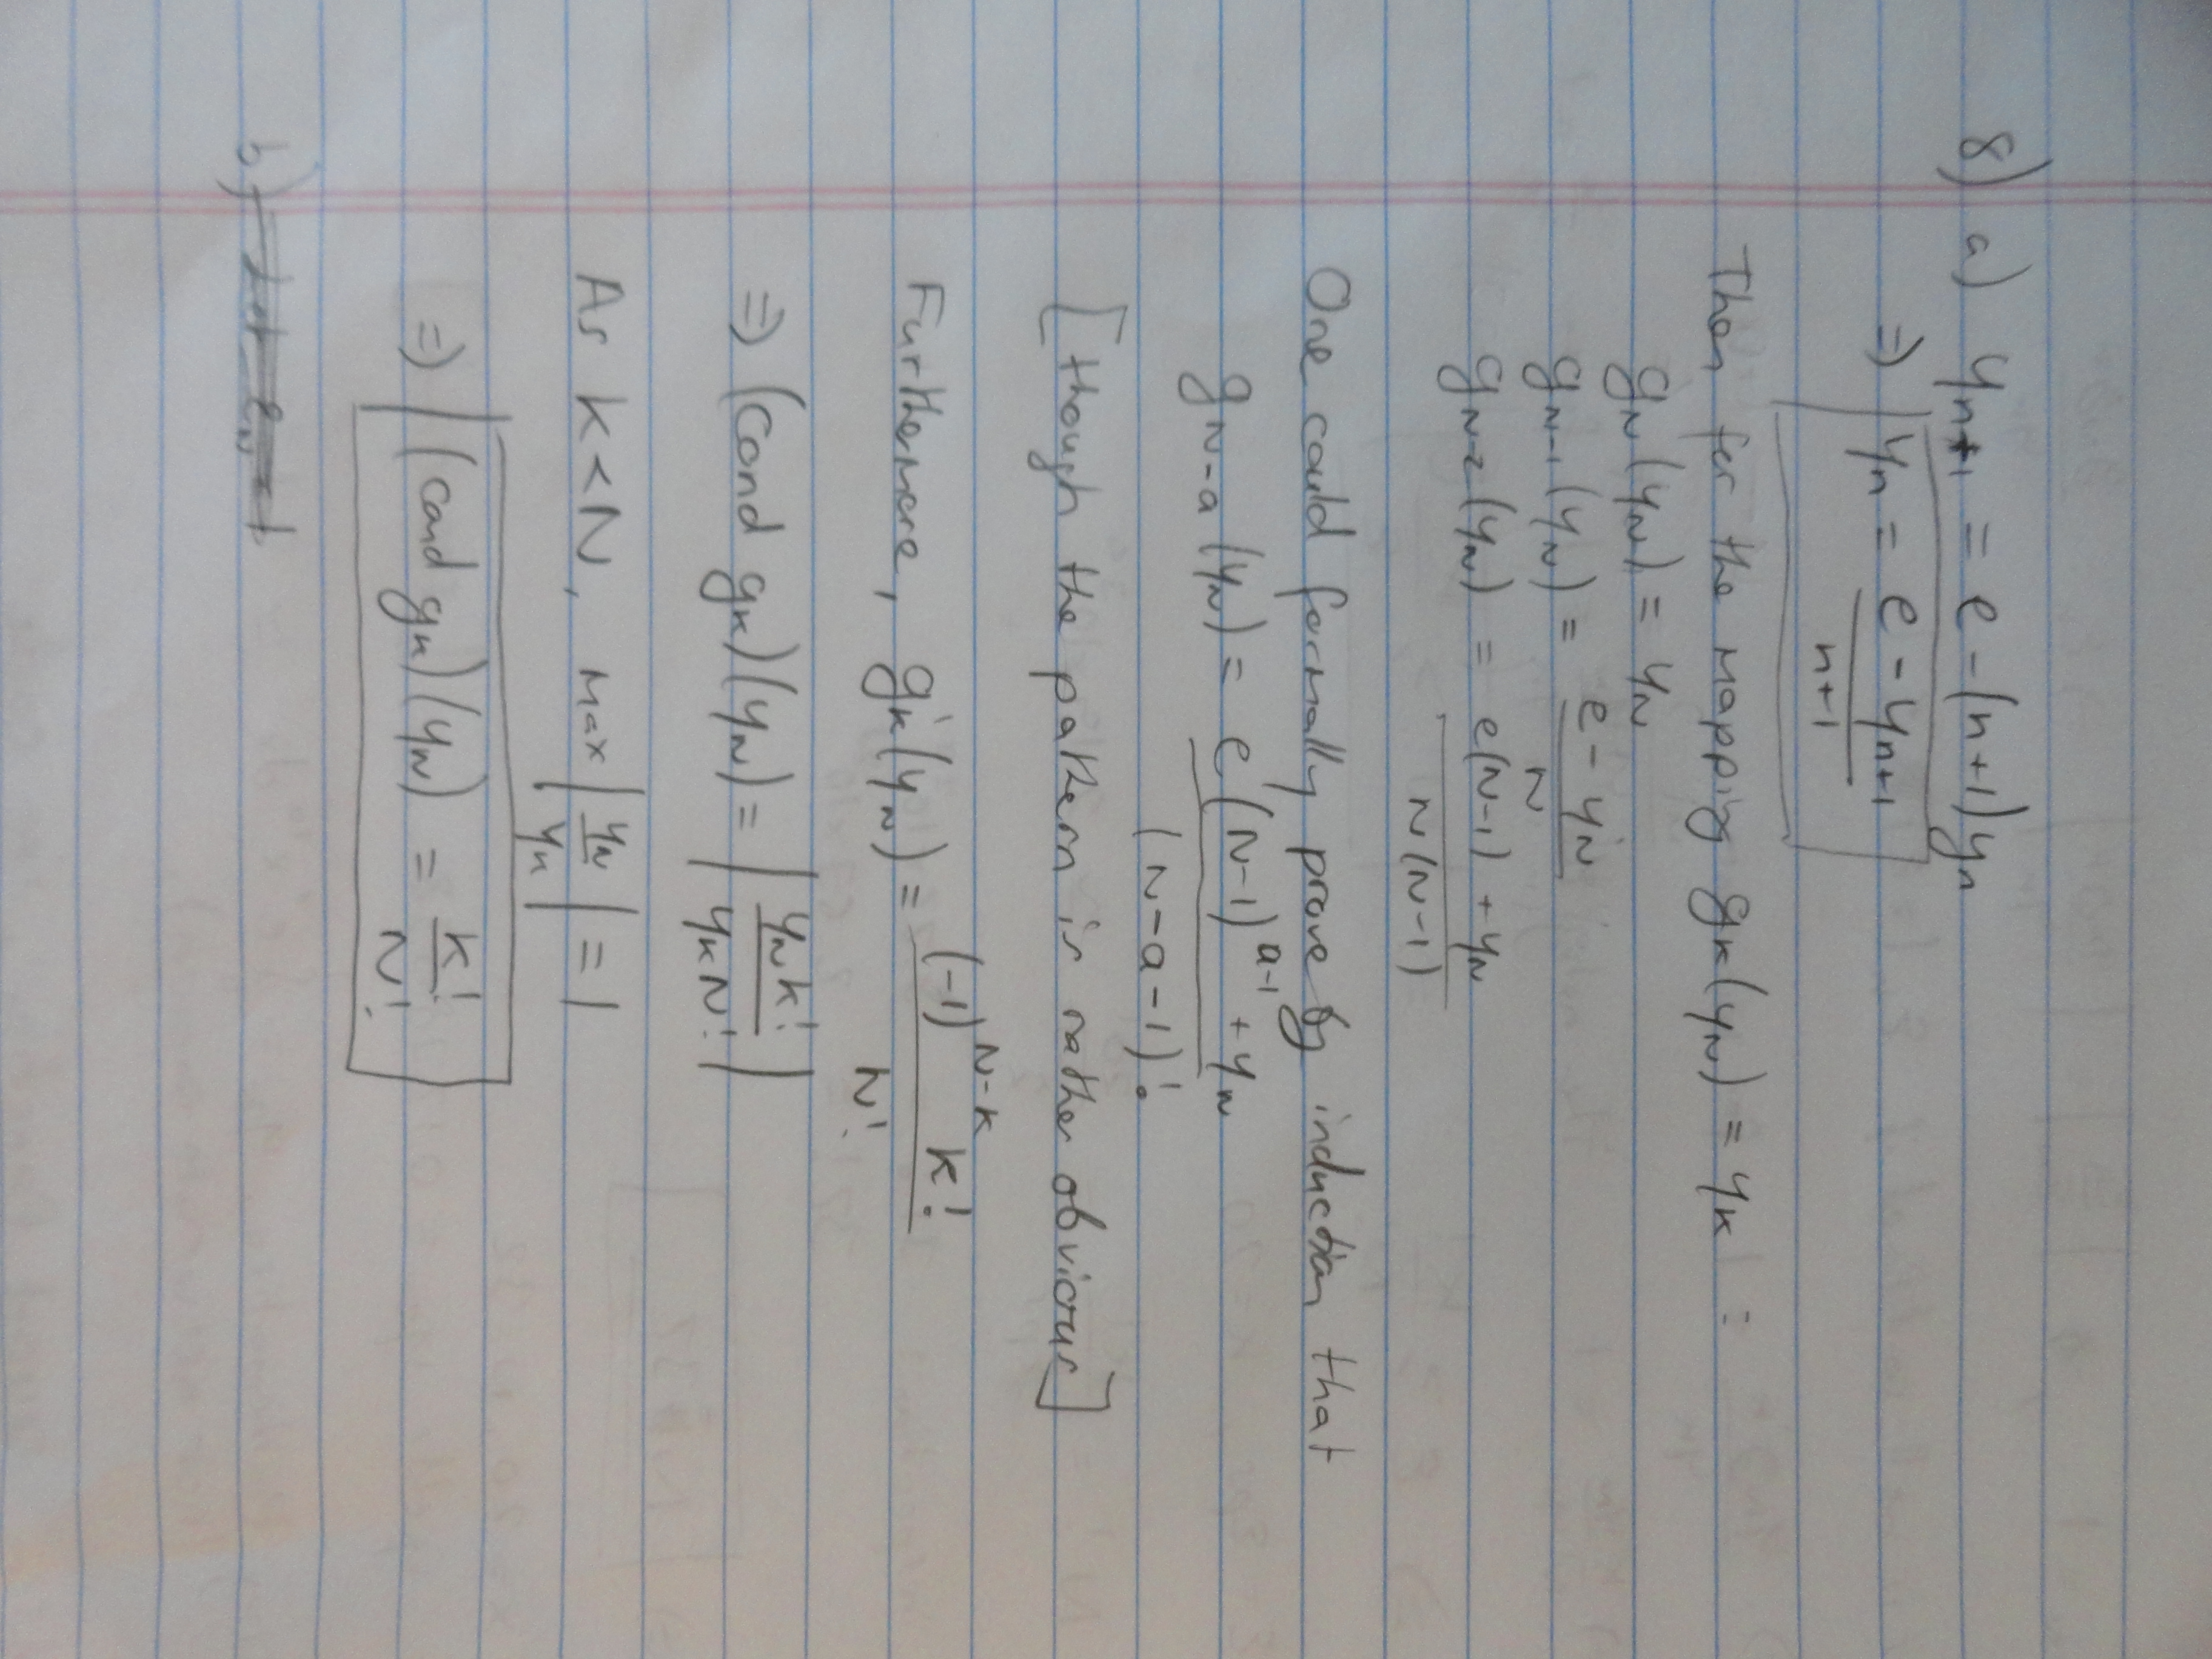 8) a) yₙ₊₁ = e - (n+1)yₙ
⇒ yₙ = (e - yₙ₊₁)/(n+1)
Then for the mapping gₖ(y_N) = yₖ :
g_N(y_N) = y_N
g_{N-1}(y_N) = (e - y_N)/N
g_{N-2}(y_N) = (e(N-1) + y_N)/(N(N-1))
One could formally prove by induction that
g_{N-a}(y_N) = (e(N-1)^{a-1} + y_N)/(N-a-1)!
[though the pattern is rather obvious]
Furthermore, g'ₖ(y_N) = ((-1)^{N-k} k!)/N!
⇒ (cond gₖ)(y_N) = |(y_N k!)/(yₖ N!)|
As k<N, max |y_N/yₖ| = 1
⇒ (cond gₖ)(y_N) = k!/N!
b)